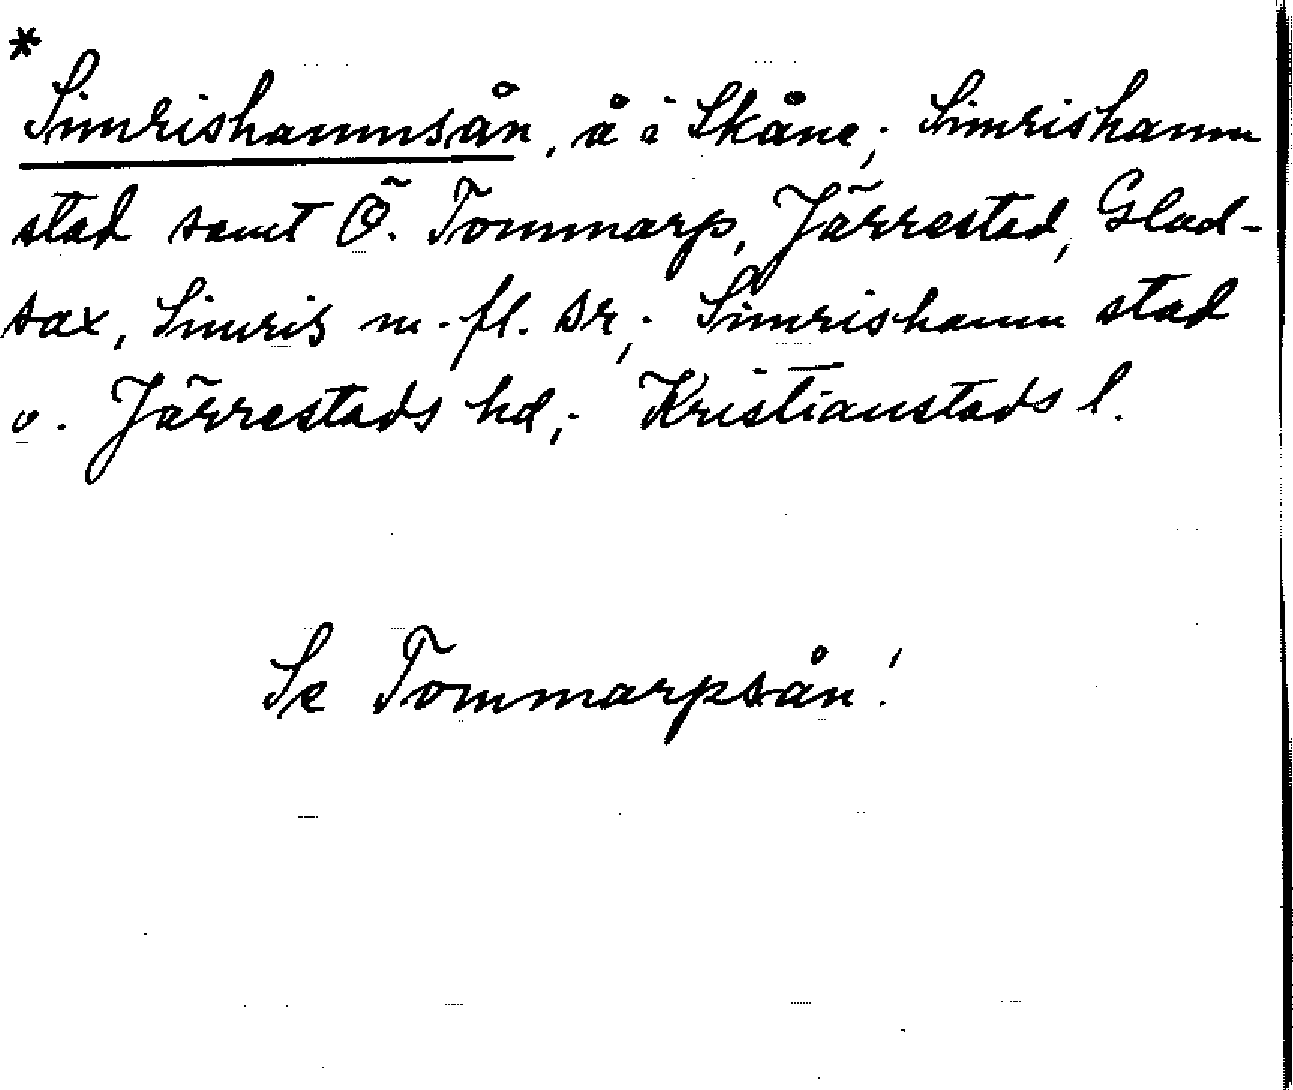 *
Simrishamnsån, å i Skåne; Simrishamn
stad samt Ö. Tommarp, Järrestad, Glad-
sax, Simris m. fl. sr; Simrishamn stad
o. Järrestads hd; Kristianstads l.
Se Tommarpsån!